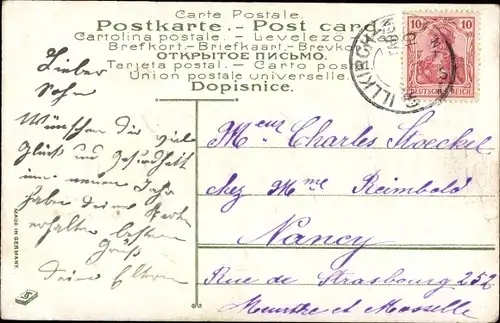 Carte Postale.
Postkarte. - Post card
Cartolina postale. - Levelezo
Brefkort.-Briefkaart.-Brevko
ОТКРЫТОЕ ПИСЬМО.
Tarjeta postal. - Carto po
Union postale universelle.
Dopisnice.
10 10
DEUTSCHES REICH
ILLKIRCH
Lieber
Sohn
Wünschen dir viel
Glück und Gesundheit
im neuen Jahr
haben deine Karten
erhalten besten
Gruß
deine Eltern
Mr Charles Stoeckel
chez Mme Reimbold
Nancy
Rue de Strasbourg 252
Meurthe et Moselle
MADE IN GERMANY.